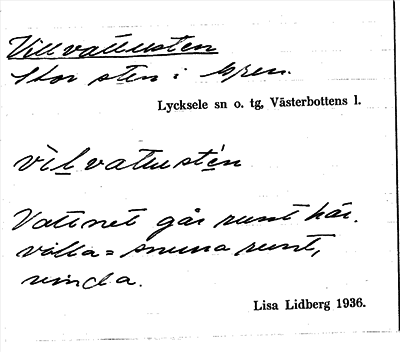 Villvattusten
Stor sten i byen.
Lycksele sn o. tg, Västerbottens l.
vil vattustén
Vatinet går runt här.
villa = snurra runt,
vinda.
Lisa Lidberg 1936.